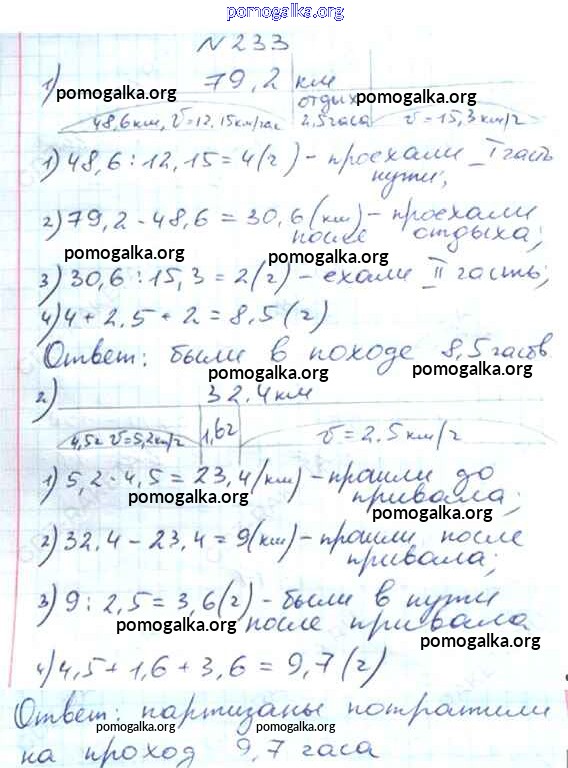 pomogalka.org
N 233
1) 79,2 км
pomogalka.org
отдых
pomogalka.org
48,6км, V=12,15км/час 2,5часа V=15,3км/г
1) 48,6:12,15=4(г) - проехали I гасть
пути;
2) 79,2-48,6=30,6(км) - проехали
после отдыха;
pomogalka.org
pomogalka.org
3) 30,6:15,3=2(г) - ехали II гасть;
4) 4+2,5+2=8,5(г)
Ответ: были в походе 8,5гасов
pomogalka.org
pomogalka.org
2) 32.4км
4,5г V=5,2км/г 1,6г V=2.5км/г
1) 5,2·4,5=23,4(км) - прошли до
привала;
pomogalka.org
pomogalka.org
2) 32.4-23,4=9(км) - прошли после
привала;
3) 9:2,5=3,6(г) - были в пути
после привала
pomogalka.org
pomogalka.org
4) 4,5+1,6+3,6=9,7(г)
Ответ: партизаны потратили
pomogalka.org
pomogalka.org
на проход 9,7 гаса